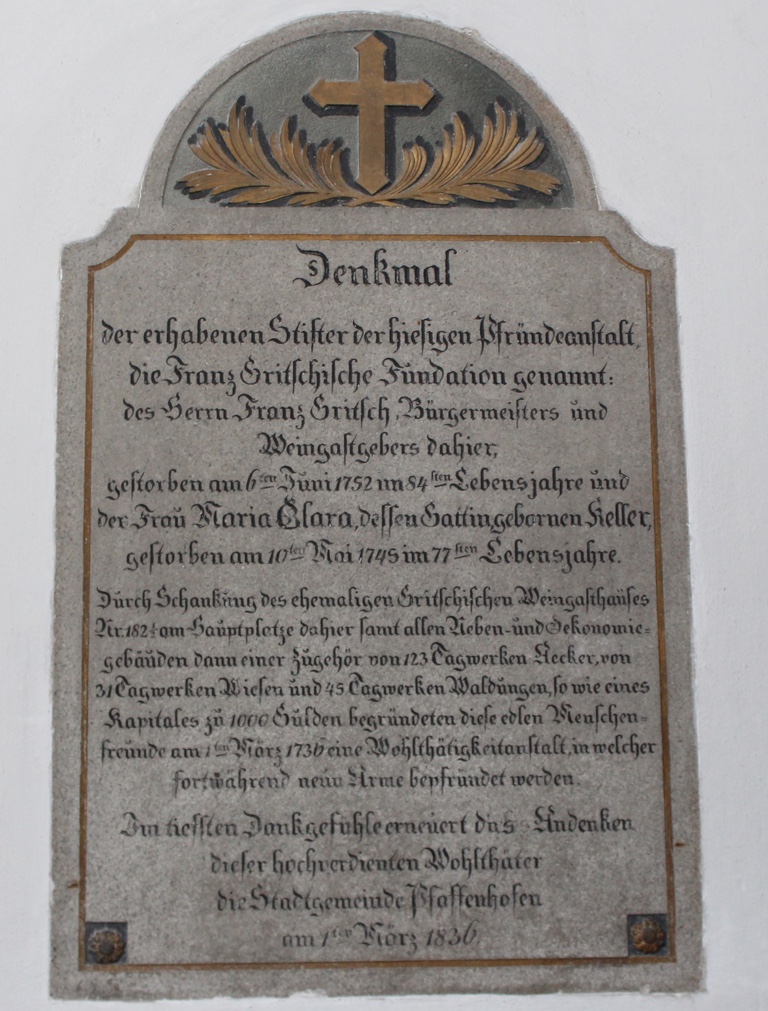 Denkmal
der erhabenen Stifter der hiesigen Pfründeanstalt,
die Franz Gritschische Fundation genannt:
des Herrn Franz Gritsch, Bürgermeisters und
Weingastgebers dahier,
gestorben am 6ten Juni 1752 im 84sten Lebensjahre und
der Frau Maria Clara, dessen Gattin, gebornen Keller,
gestorben am 10ten Mai 1745 im 77sten Lebensjahre.
Durch Schankung des ehemaligen Gritschischen Weingasthauses
Nr. 182 am Hauptplatze dahier samt allen Neben- und Oekonomie=
gebäuden dann einer Zugehör von 123 Tagwerken Aecker, von
31 Tagwerken Wiesen und 45 Tagwerken Waldungen, so wie eines
Kapitales zu 1000 Gulden begründeten diese edlen Menschen=
freunde am 1ten März 1736 eine Wohlthätigkeitanstalt, in welcher
fortwährend neun Arme bepfründet werden.
Im tiefsten Dankgefühle erneuert das Andenken
dieser hochverdienten Wohlthäter
die Stadtgemeinde Pfaffenhofen
am 1ten März 1836.